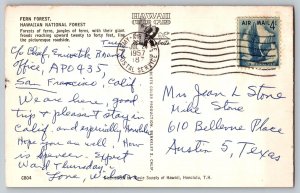 FERN FOREST,
HAWAIIAN NATIONAL FOREST
Forests of fern, jungles of ferns, with their giant
fronds reaching upward twenty to forty feet, line
the picturesque roadside.
HAWAII
AIR MAIL 4¢
1957
Tues
c/o Chief, Eniwetok Branch
Office, APO 435,
San Francisco, Calif.
We are here, good
trip & pleasant stay in
Calif. and especially Honolulu
Hope you are well, How
is Spencer. Expect
Ward Thursday.
Love, Wilma
Mrs Jean L Stone
Mike Stone
610 Bellevue Place
Austin 5, Texas
C804
Supply of Hawaii, Honolulu, T.H.